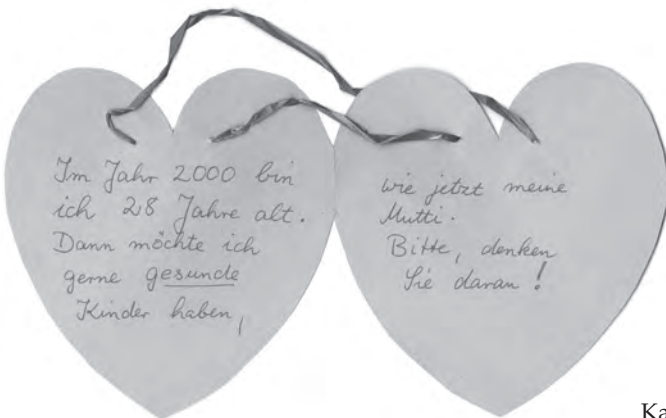 Im Jahr 2000 bin
ich 28 Jahre alt.
Dann möchte ich
gerne gesunde
Kinder haben,
wie jetzt meine
Mutti.
Bitte, denken
Sie daran!
Ka